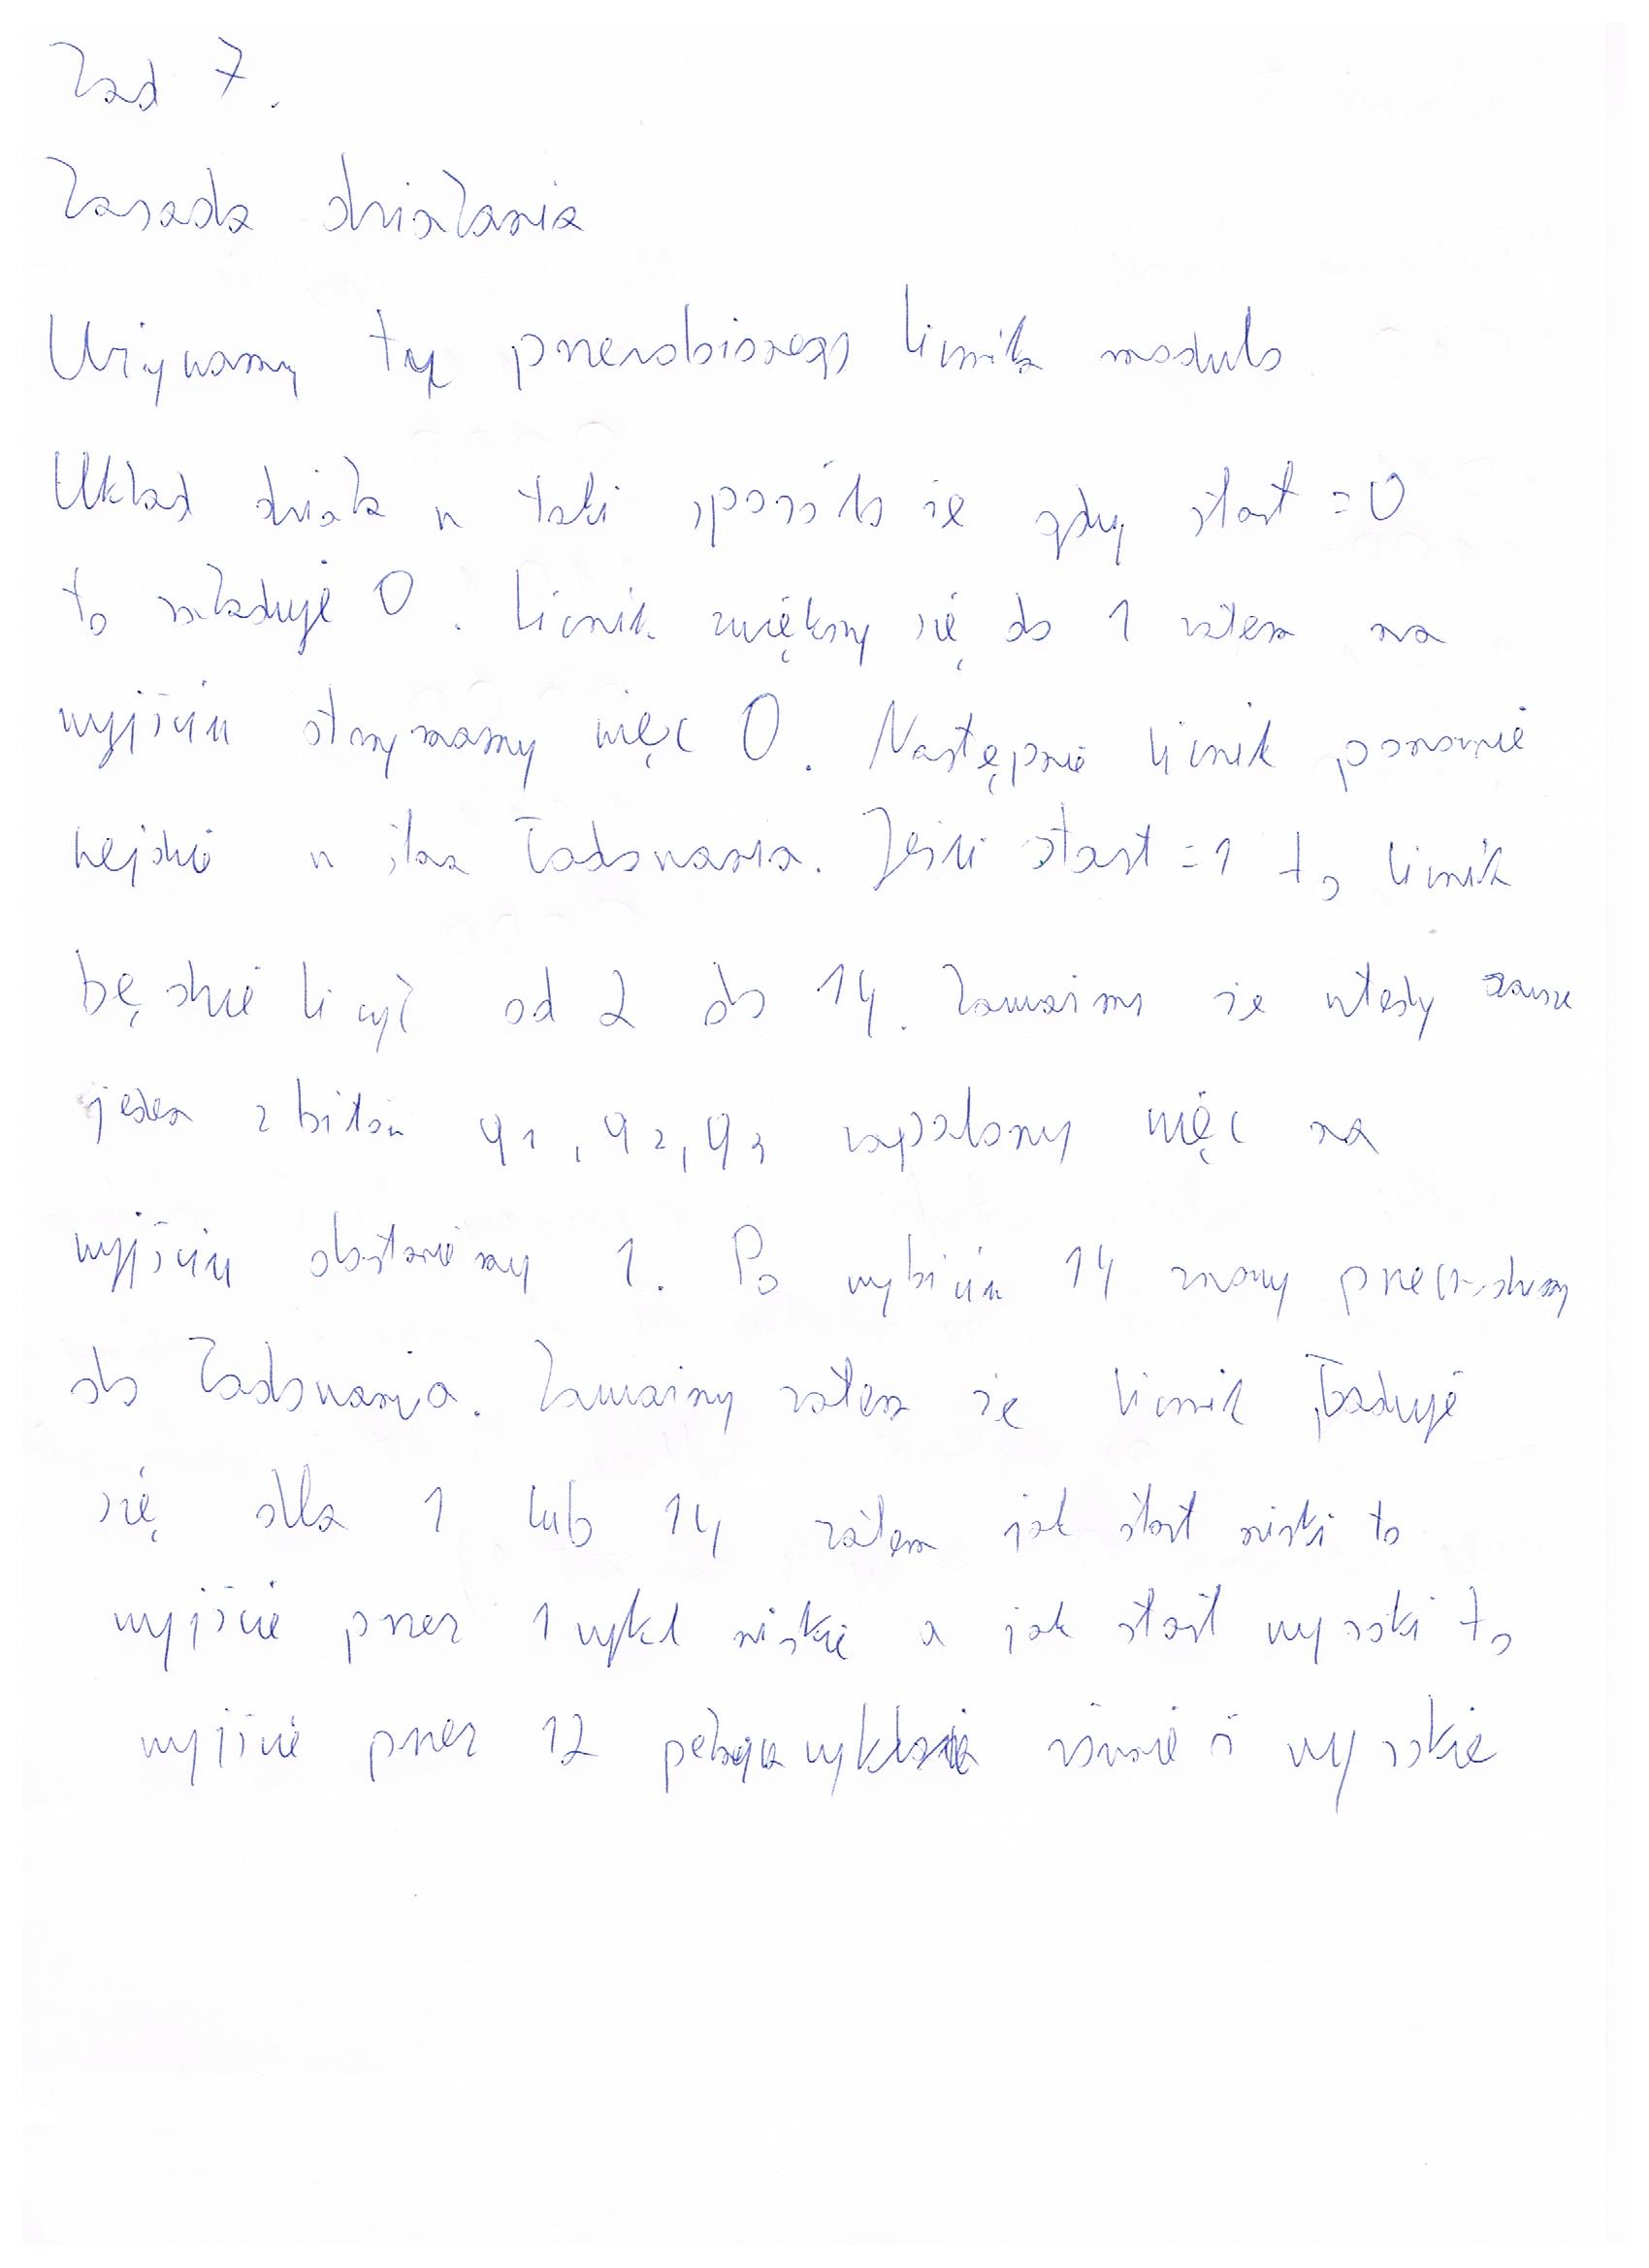 Zad 7.
Zasada działania
Używamy przerobionego licznika modulo
Układ działa w taki sposób że gdy start = 0
to załaduje 0. Licznik zwiększy się do 1 zatem na
wyjściu otrzymamy więc 0. Następnie licznik ponownie
wejdzie w stan ładowania. Jeśli start = 1 to licznik
będzie liczyć od 2 do 14. Zauważmy że wtedy zawsze
jeden z bitów q1, q2, q3 zapalony więc na
wyjściu dostaniemy 1. Po wybiciu 14 znowu przechodzimy
do ładowania. Zauważmy zatem że licznik ładuje
się dla 1 lub 14 zatem jak start niski to
wyjście przez 1 cykl niskie a jak start wysoki to
wyjście przez 12 również wysokie